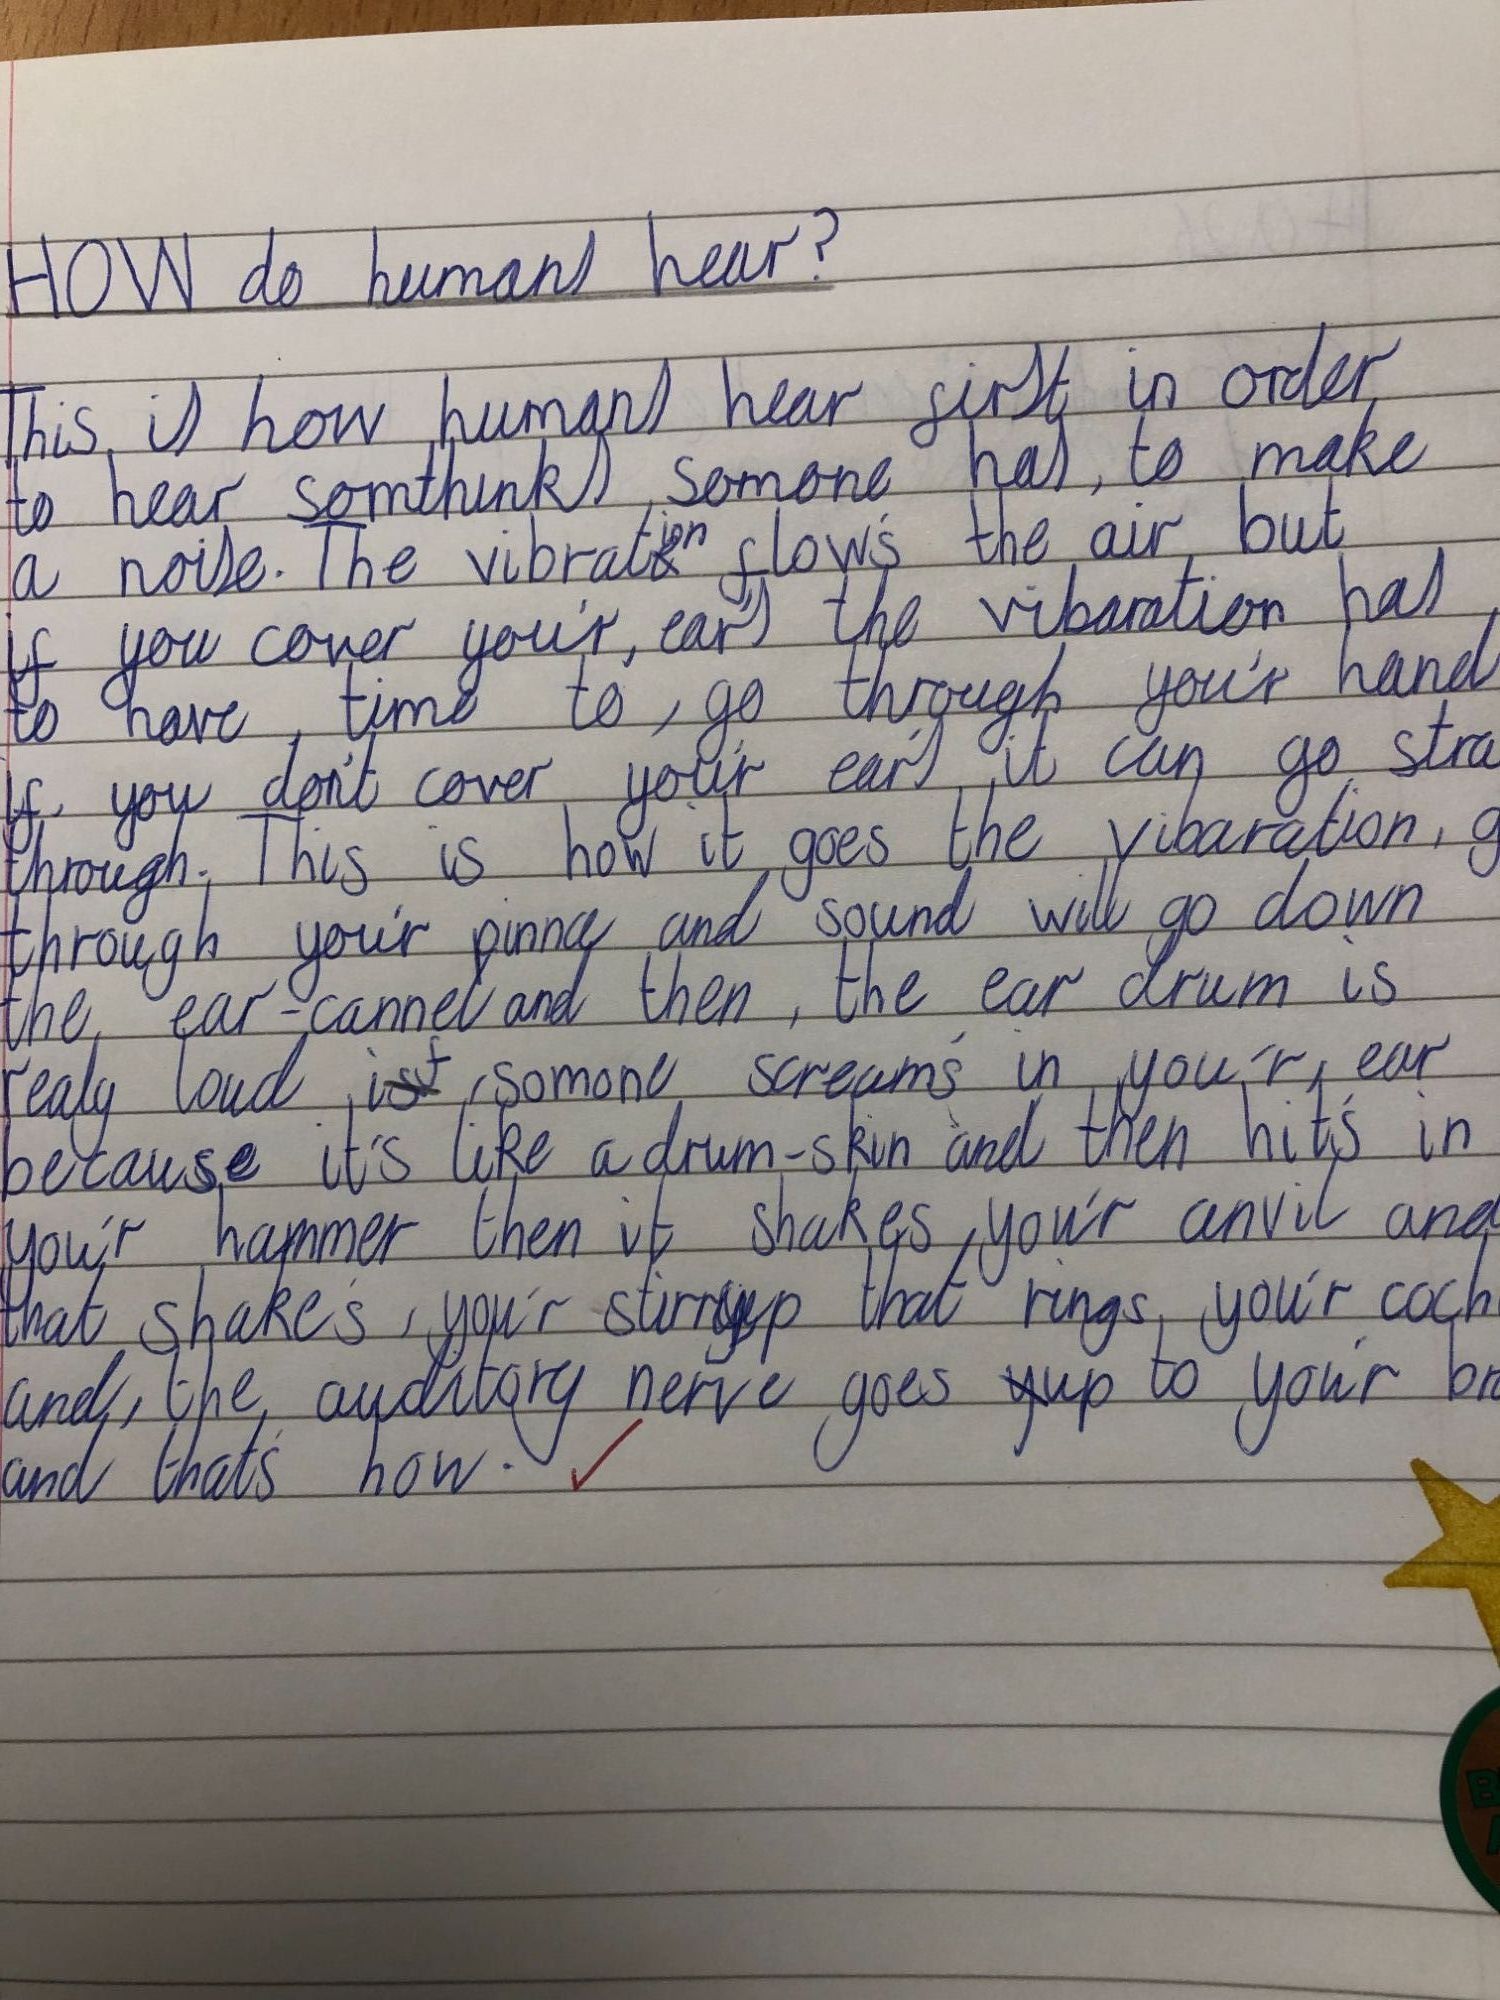 HOW do humans hear?
This is how humans hear first in order
to hear somthinks, somone has, to make
a noise. The vibration flow's the air, but
if you cover you'r, ear's the vibaration has,
to have, time to, go through you'r hand
If, you don't cover you'r ear's, it can go stra
through. This is how it goes the vibaration, g
through you'r pinna and sound will go down
the, ear-cannel and then, the ear drum is
realy loud, if, somone scream's in, you'r, ear
because it's like a drum-skin and then hit's in
you'r hammer then it shakes, you'r anvil and
that shake's, you'r stirrup that rings, you'r coch
and, the, auditory nerve goes up to you'r bra
and that's how.